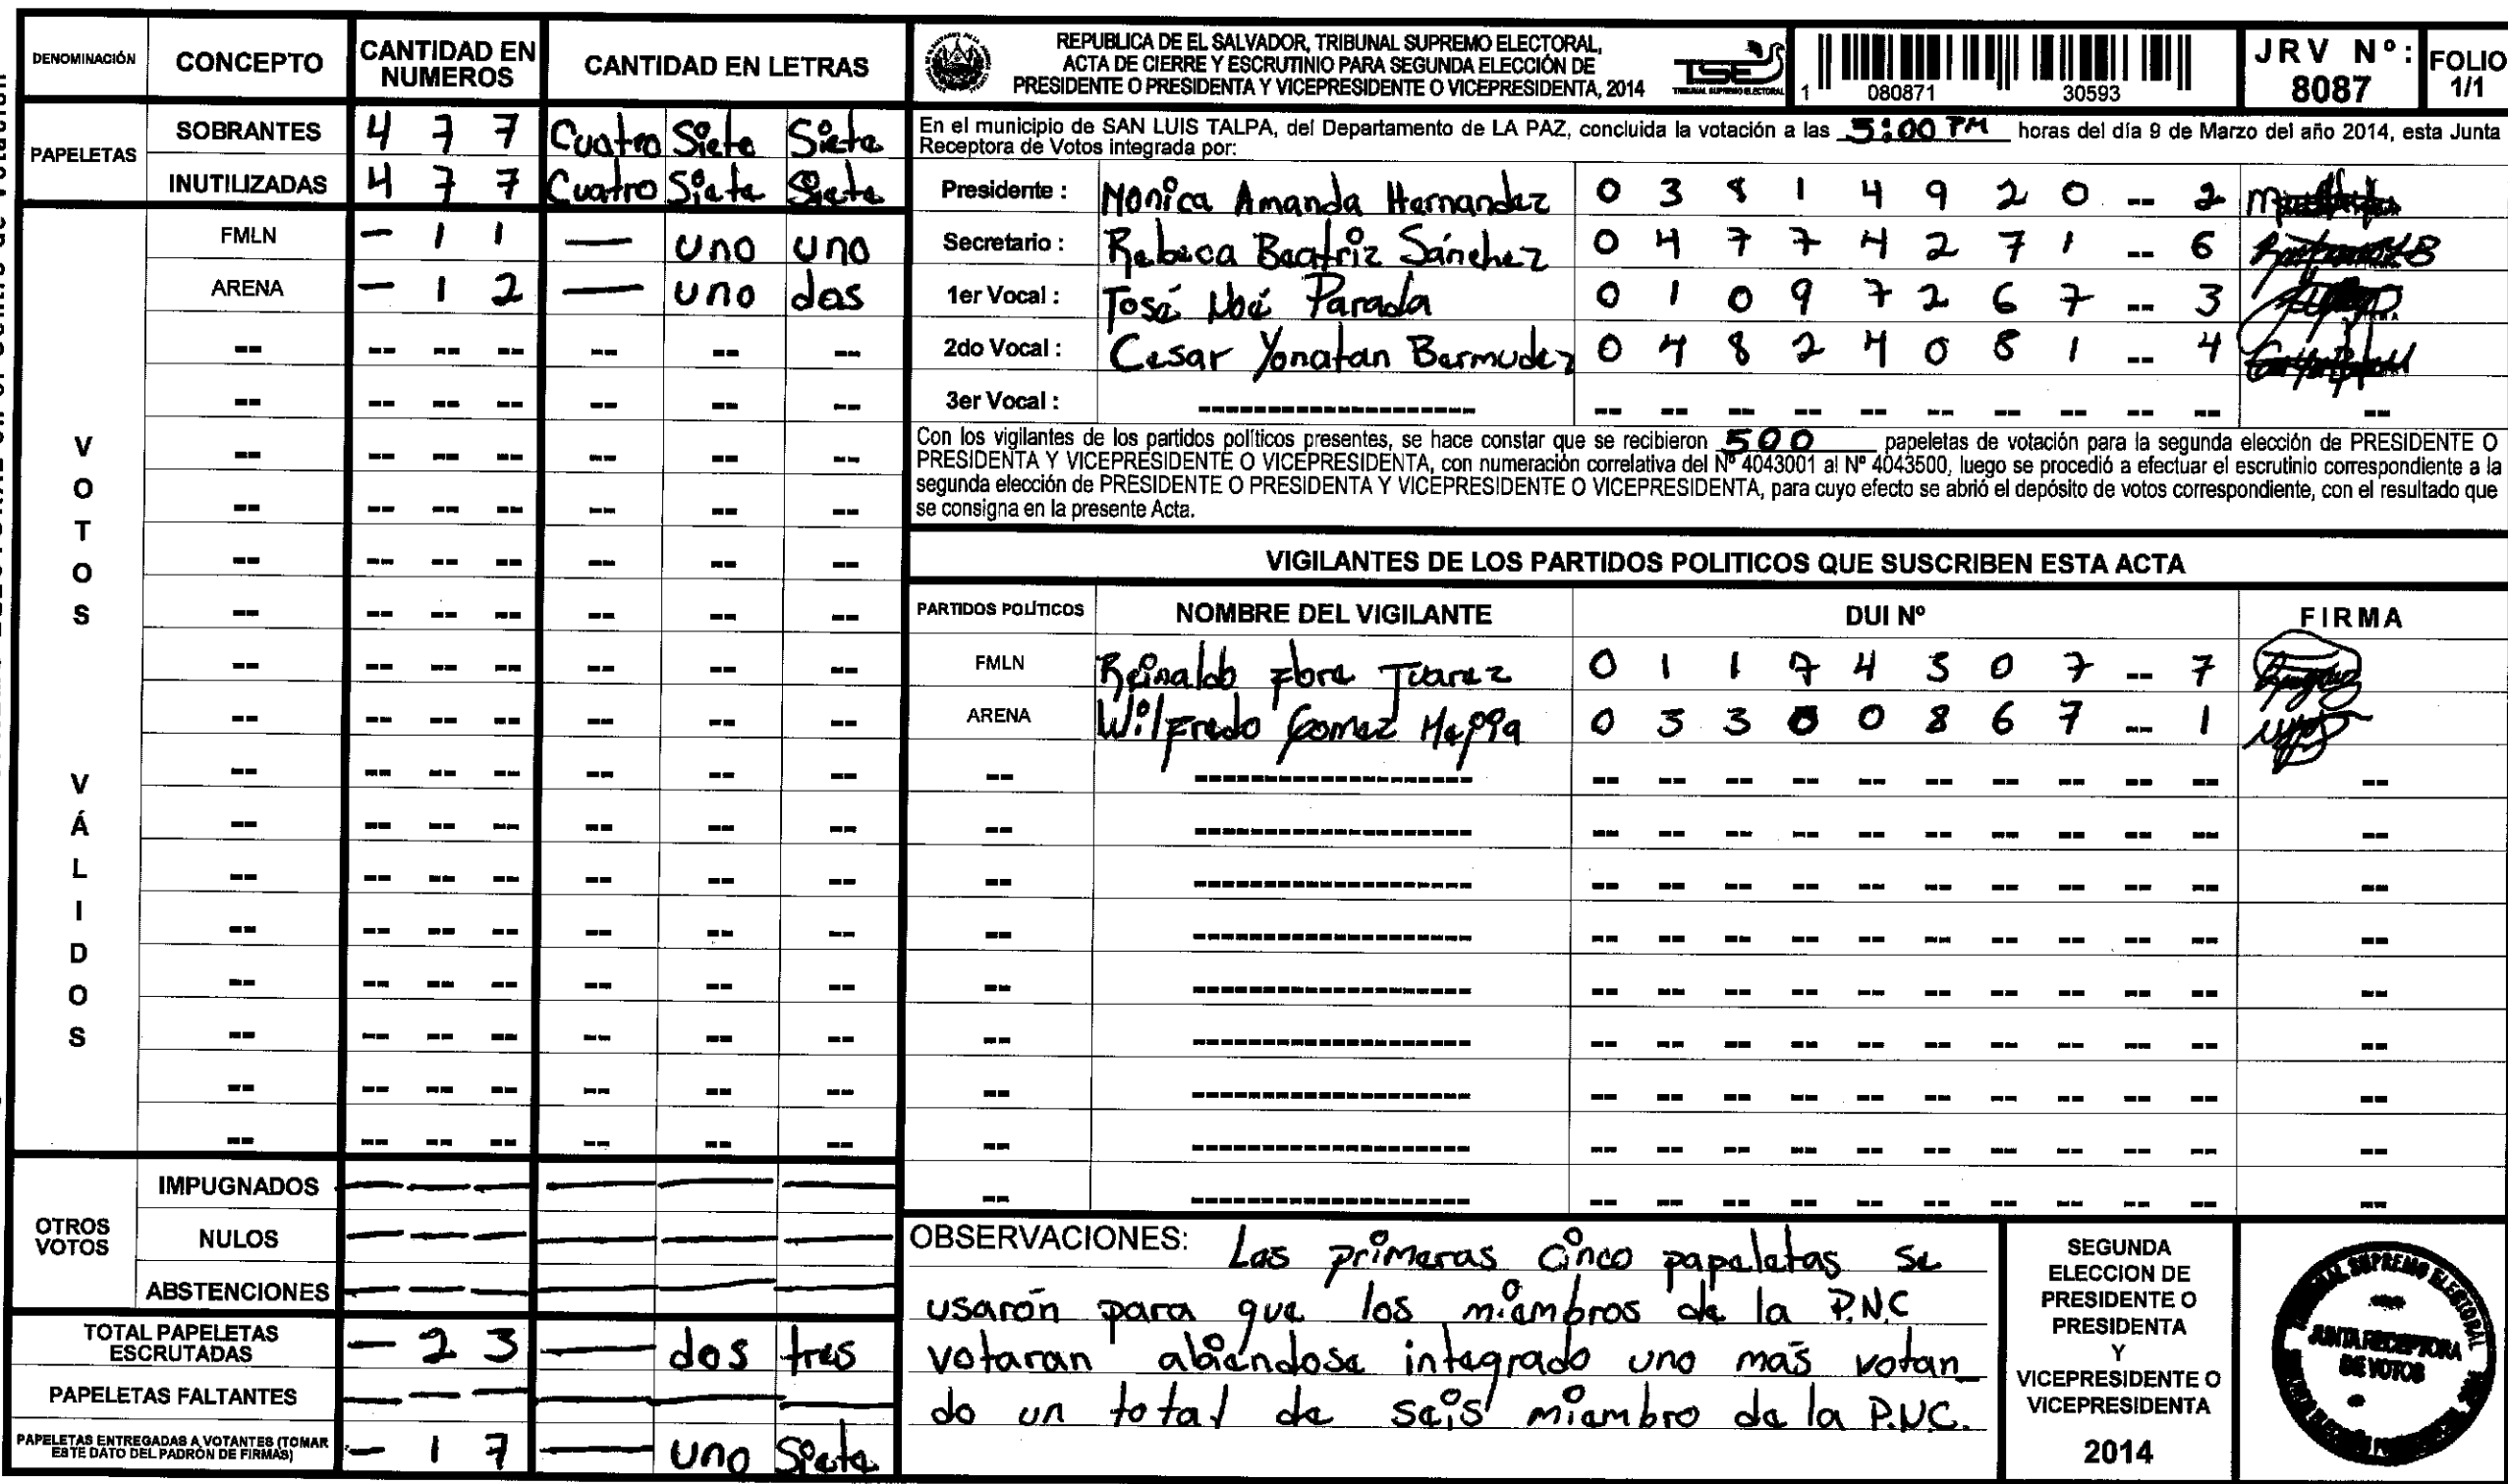 DENOMINACIÓN CONCEPTO CANTIDAD EN NUMEROS CANTIDAD EN LETRAS
PAPELETAS
SOBRANTES 4 7 7 Cuatro Siete Siete
INUTILIZADAS 4 7 7 Cuatro Siete Siete
VOTOS VÁLIDOS
FMLN - 1 1 — uno uno
ARENA - 1 2 — uno dos
OTROS VOTOS
IMPUGNADOS
NULOS
ABSTENCIONES
TOTAL PAPELETAS ESCRUTADAS - 2 3 — dos tres
PAPELETAS FALTANTES
PAPELETAS ENTREGADAS A VOTANTES (TOMAR ESTE DATO DEL PADRÓN DE FIRMAS) - 1 7 — uno Siete
REPUBLICA DE EL SALVADOR, TRIBUNAL SUPREMO ELECTORAL,
ACTA DE CIERRE Y ESCRUTINIO PARA SEGUNDA ELECCIÓN DE
PRESIDENTE O PRESIDENTA Y VICEPRESIDENTE O VICEPRESIDENTA, 2014
TSE
TRIBUNAL SUPREMO ELECTORAL
1 080871 30593
JRV Nº: 8087
FOLIO 1/1
En el municipio de SAN LUIS TALPA, del Departamento de LA PAZ, concluida la votación a las 5:00 PM horas del día 9 de Marzo del año 2014, esta Junta
Receptora de Votos integrada por:
Presidente : Monica Amanda Hernandez 0 3 8 1 4 9 2 0 -- 2
Secretario : Rebeca Beatriz Sánchez 0 4 7 7 4 2 7 1 -- 6
1er Vocal : José Noé Parada 0 1 0 9 7 2 6 7 -- 3
2do Vocal : Cesar Yonatan Bermudez 0 4 8 2 4 0 8 1 -- 4
3er Vocal :
Con los vigilantes de los partidos políticos presentes, se hace constar que se recibieron 500 papeletas de votación para la segunda elección de PRESIDENTE O
PRESIDENTA Y VICEPRESIDENTE O VICEPRESIDENTA, con numeración correlativa del Nº 4043001 al Nº 4043500, luego se procedió a efectuar el escrutinio correspondiente a la
segunda elección de PRESIDENTE O PRESIDENTA Y VICEPRESIDENTE O VICEPRESIDENTA, para cuyo efecto se abrió el depósito de votos correspondiente, con el resultado que
se consigna en la presente Acta.
VIGILANTES DE LOS PARTIDOS POLITICOS QUE SUSCRIBEN ESTA ACTA
PARTIDOS POLÍTICOS NOMBRE DEL VIGILANTE DUI Nº FIRMA
FMLN Reinaldo Juarez 0 1 1 7 4 3 0 7 -- 7
ARENA Wilfredo Gomez Mejia 0 3 3 0 0 8 6 7 -- 1
OBSERVACIONES: Las primeras cinco papeletas se
usarón para que los miembros de la P.N.C
votaran abiendose integrado uno más votan
do un total de seis miembro de la P.N.C.
SEGUNDA
ELECCION DE
PRESIDENTE O
PRESIDENTA
Y
VICEPRESIDENTE O
VICEPRESIDENTA
2014
SUPREMO ELECTORAL
JUNTA RECEPTORA
DE VOTOS